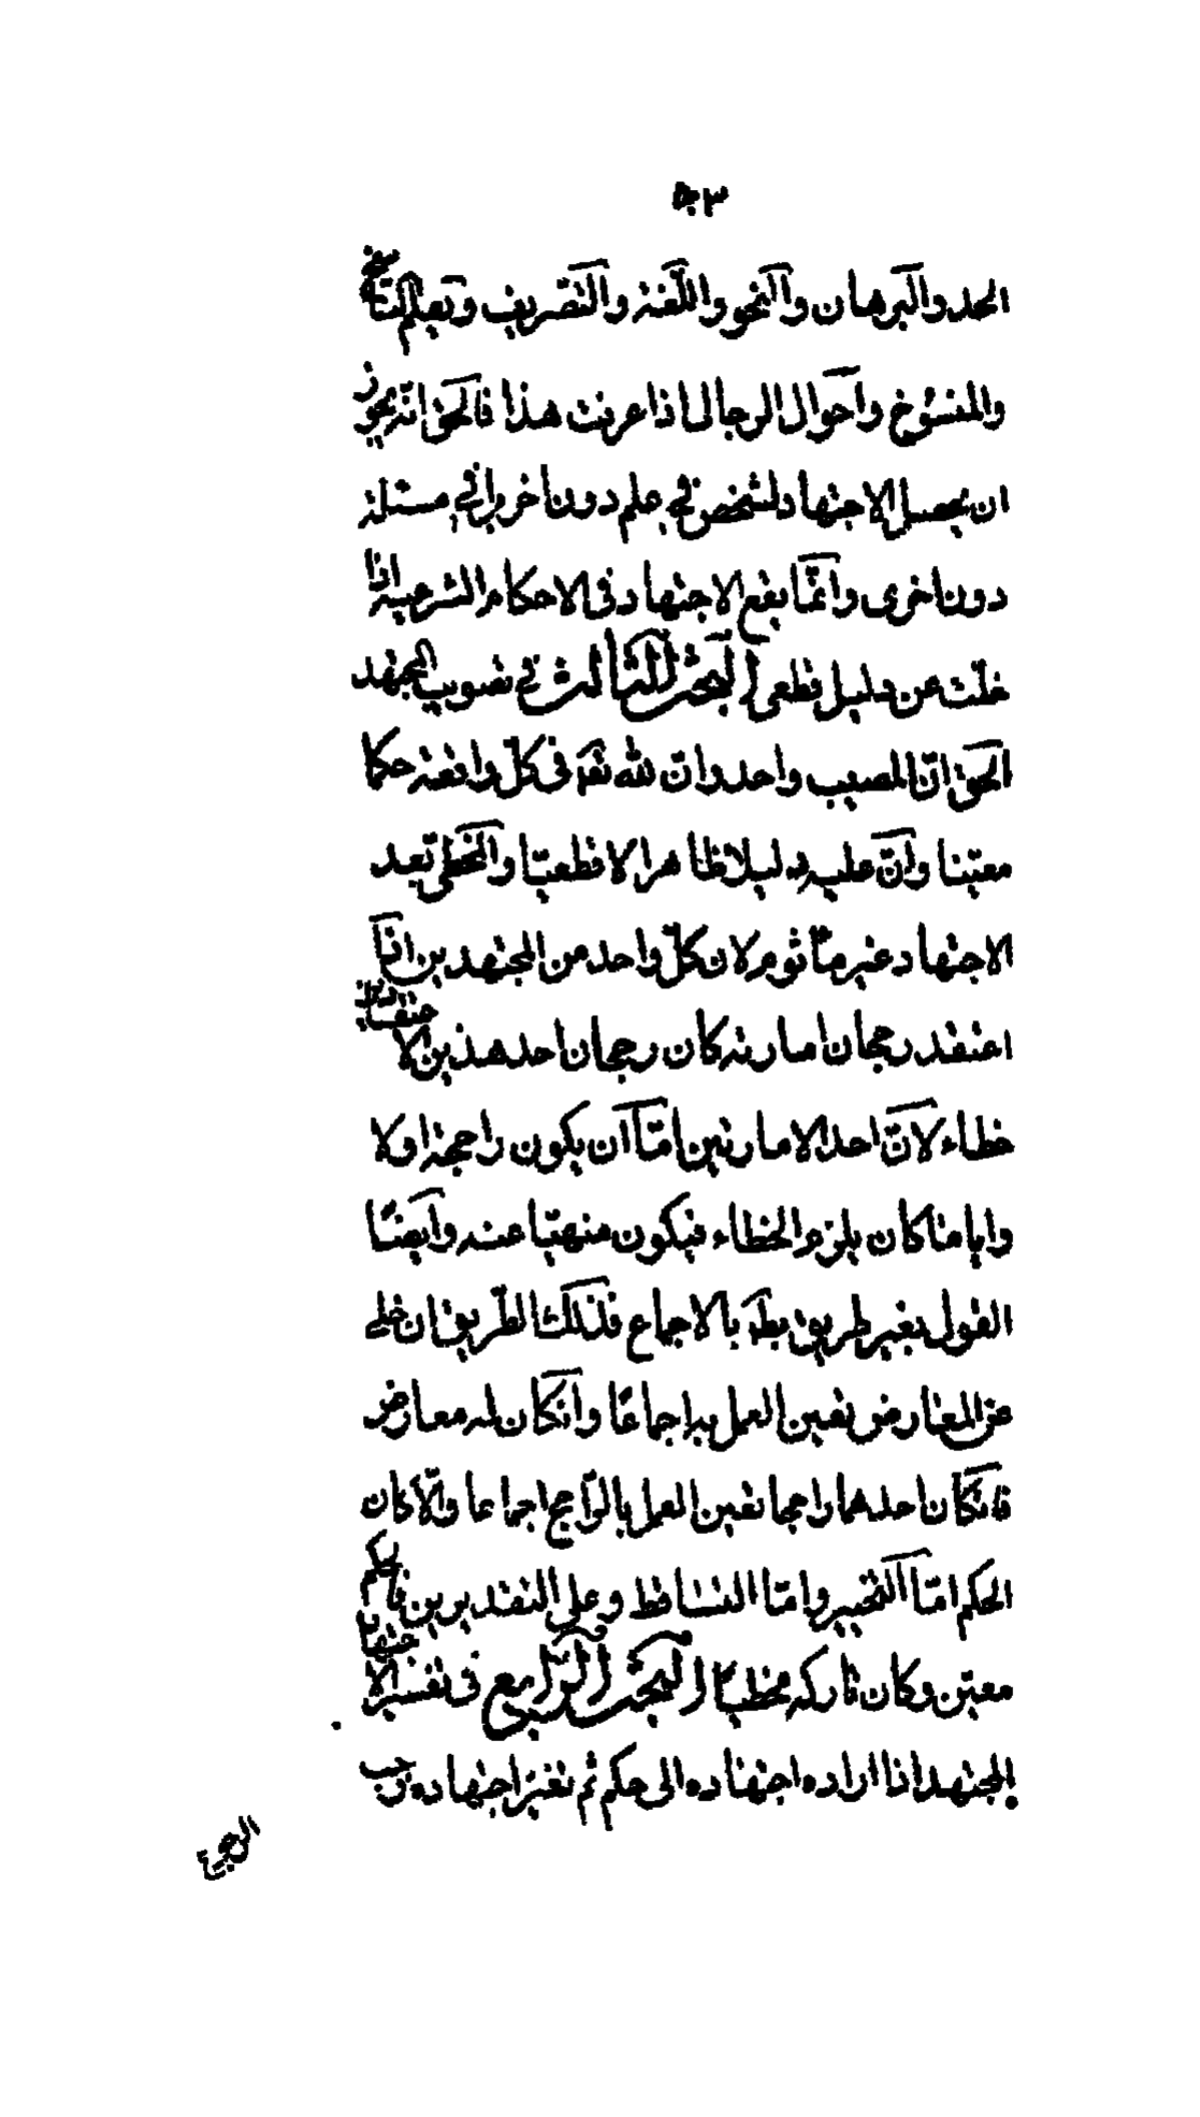 الحد والبرهان والنحو واللّغة والتصريف ويعلم الناسخ
والمنسوخ واحوال الرجال اذا عرفت هذا فالحق انّه يجوز
ان يحصل الاجتهاد لشخص في علم دون اخر وفي مسئلة
دون اخرى وانّما يقع الاجتهاد فى الاحكام الشرعية اذا
خلت عن دليل قطعى البحث الثالث في تصويب المجتهد
الحق انّ المصيب واحد وانّ لله تعه فى كلّ واقعة حكما
معيّنا وانّ عليه دليلا ظاهرا لا قطعيّا والمخطى بعد
الاجتهاد غير مأثوم لان كلّ واحد من المجتهدين اذا
اعتقد رجحان امارته كان رجحان احد هذين الاعتقادين
خطاء لانّ احد الامارتين امّا ان يكون راجحة اولا
وايا ما كان يلزم الخطاء فيكون منهيّا عنه وايضًا
القول بغير طريق بطه بالاجماع فذلك الطّريق ان خلى
عن المعارض تعين العمل به اجماعًا وانكان له معارض
فانكان احدهما راجحا تعين العمل بالرّاجح اجماعا والّا كان
الحكم امّا التخيير وامّا التساقط وعلى التقديرين فالحكم
معيّن وكان تاركه مخطيًا البحث الرّابع فى تفسير الاجتهاد
المجتهد اذا اراده اجتهاده الى حكم ثم تغيّر اجتهاده وجب
الرجوع